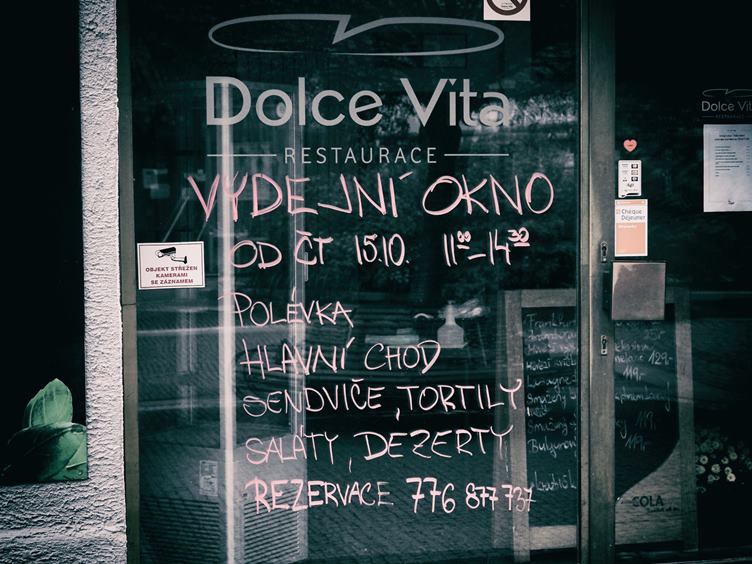 Dolce Vita
RESTAURACE
VÝDEJNÍ OKNO
OD ČT 15.10. 11⁰⁰-14³⁰
POLÉVKA
HLAVNÍ CHOD
SENDVIČE, TORTILY
SALÁTY, DEZERTY
REZERVACE 776 877 737
OBJEKT STŘEŽEN
KAMERAMI
SE ZÁZNAMEM
Dolce Vita
RESTAURACE
Chèque
Déjeuner
129,-
119,-
119,-
119,-
SOLA